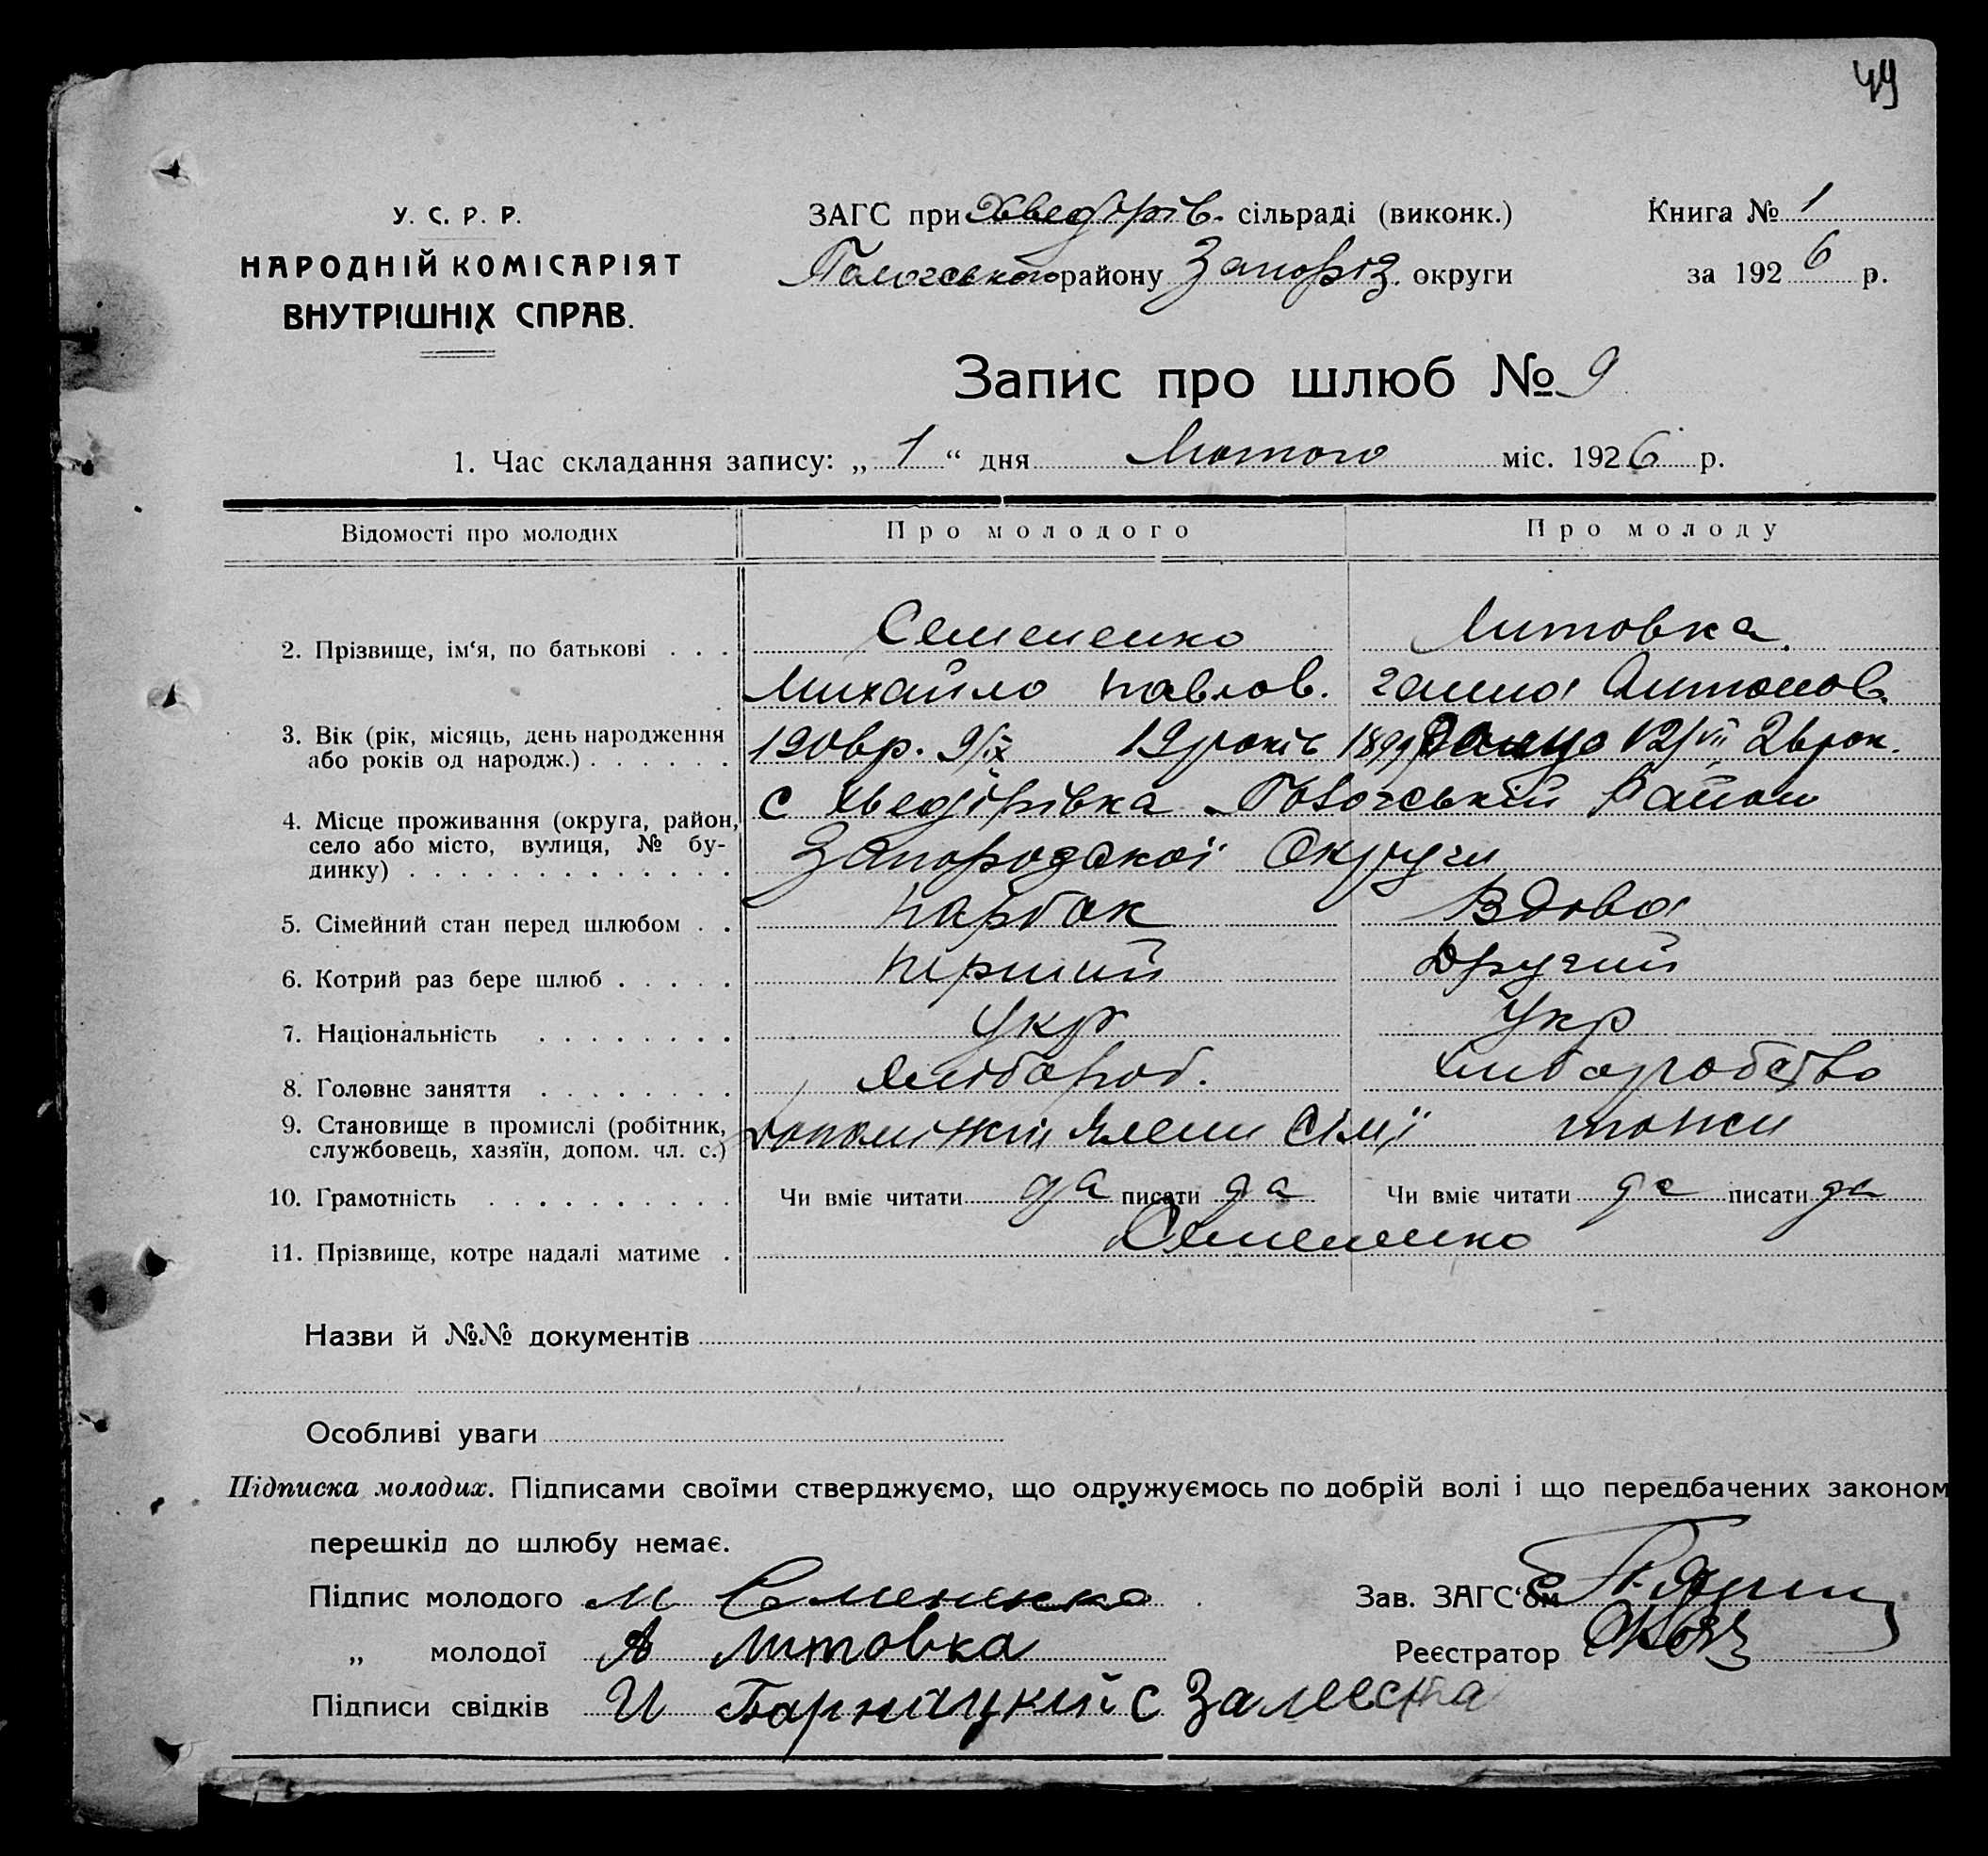 49
У. С. Р. Р.
НАРОДНІЙ КОМІСАРІЯТ
ВНУТРІШНІХ СПРАВ.
ЗАГС при Хведірів. сільраді (виконк.)
Пологського району Запоріз. округи
Книга № 1
за 1926 р.
Запис про шлюб № 9
1. Час складання запису: „ 1 “ дня Лютого міс. 1926 р.
Відомості про молодих Про молодого Про молоду
2. Прізвище, ім‘я, по батькові . . . Семененко Литовка.
Михайло Павлов. Ганна Антонов.
3. Вік (рік, місяць, день народження
або років од народж.) . . . . . . 190вр. 9/ix 19 років 1899 12/vii 2в рок.
4. Місце проживання (округа, район,
село або місто, вулиця, № бу-
динку) . . . . . . . . . . . . .
с Хведірівка Пологській Район
Запорозської Округи
5. Сімейний стан перед шлюбом . . парбок Вдова
6. Котрий раз бере шлюб . . . . . перший Другий
7. Національність . . . . . . . . Укр Укр
8. Головне заняття . . . . . . . . Хлібороб. хлиборобство
9. Становище в промислі (робітник,
службовець, хазяїн, допом. чл. с.) сімї тожи
10. Грамотність . . . . . . . . . . Чи вміє читати да писати да Чи вміє читати да писати да
11. Прізвище, котре надалі матиме . Семененко
Назви й №№ документів
Особливі уваги
Підписка молодих. Підписами своїми стверджуємо, що одружуємось по добрій волі і що передбачених законом
перешкід до шлюбу немає.
Підпис молодого М Семененко
Зав. ЗАГС‘ом
„ молодої А Литовка
Реєстратор
Підписи свідків И Барницкий с